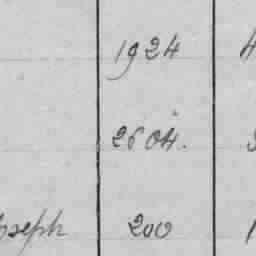 1924 4
2604.
oseph 200 1